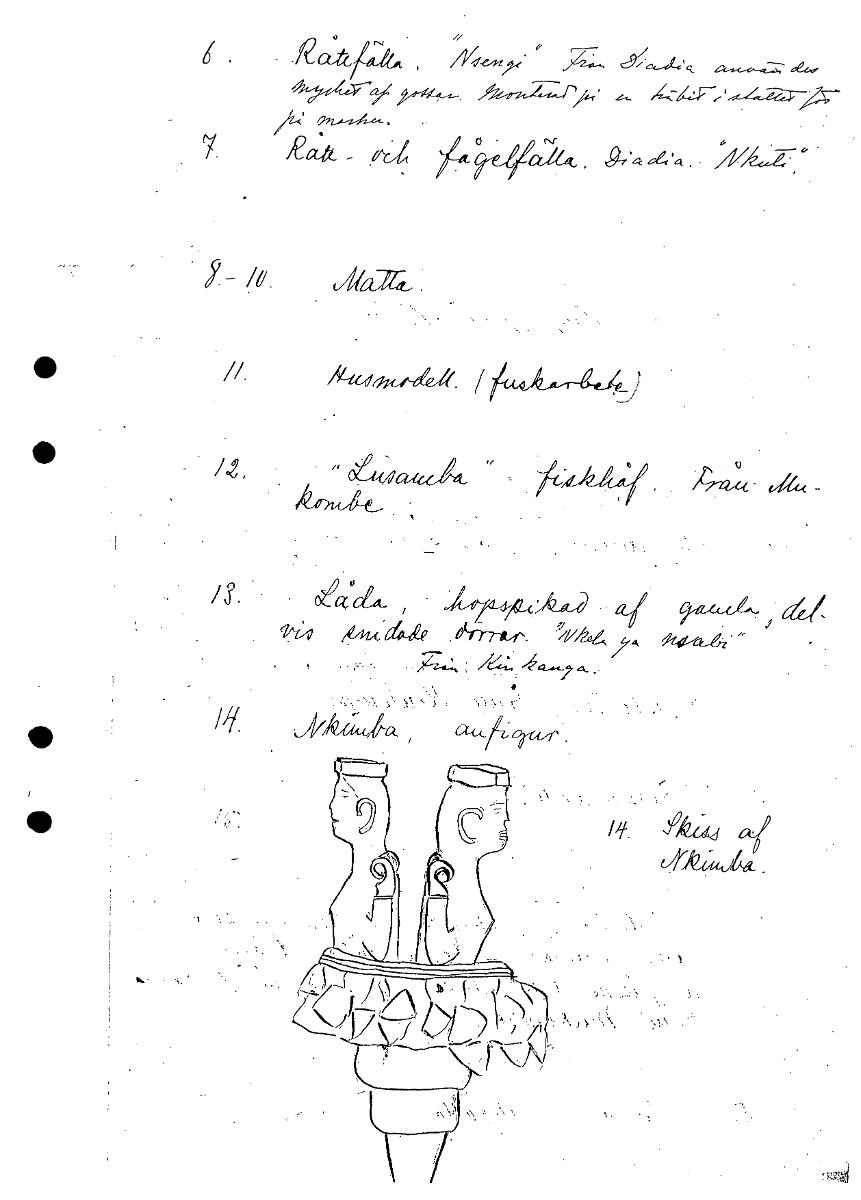 6. Råttfälla. "Nsengi" Från Diadia användes
mycket af gossar. Monterad på en träbit i stället för
på marken.
7. Rått- och fågelfälla. Diadia. "Nkuti".
8-10. Matta.
11. Husmodell. (fuskarbete)
12. "Lusamba" fiskhåf. Från Mu-
kombe
13. Låda, hopspikad af gamla, del-
vis snidade dörrar. "Nkela ya nsabi"
Från Kinkanga.
14. Nkimba, anfigur.
14. Skiss af
Nkimba.